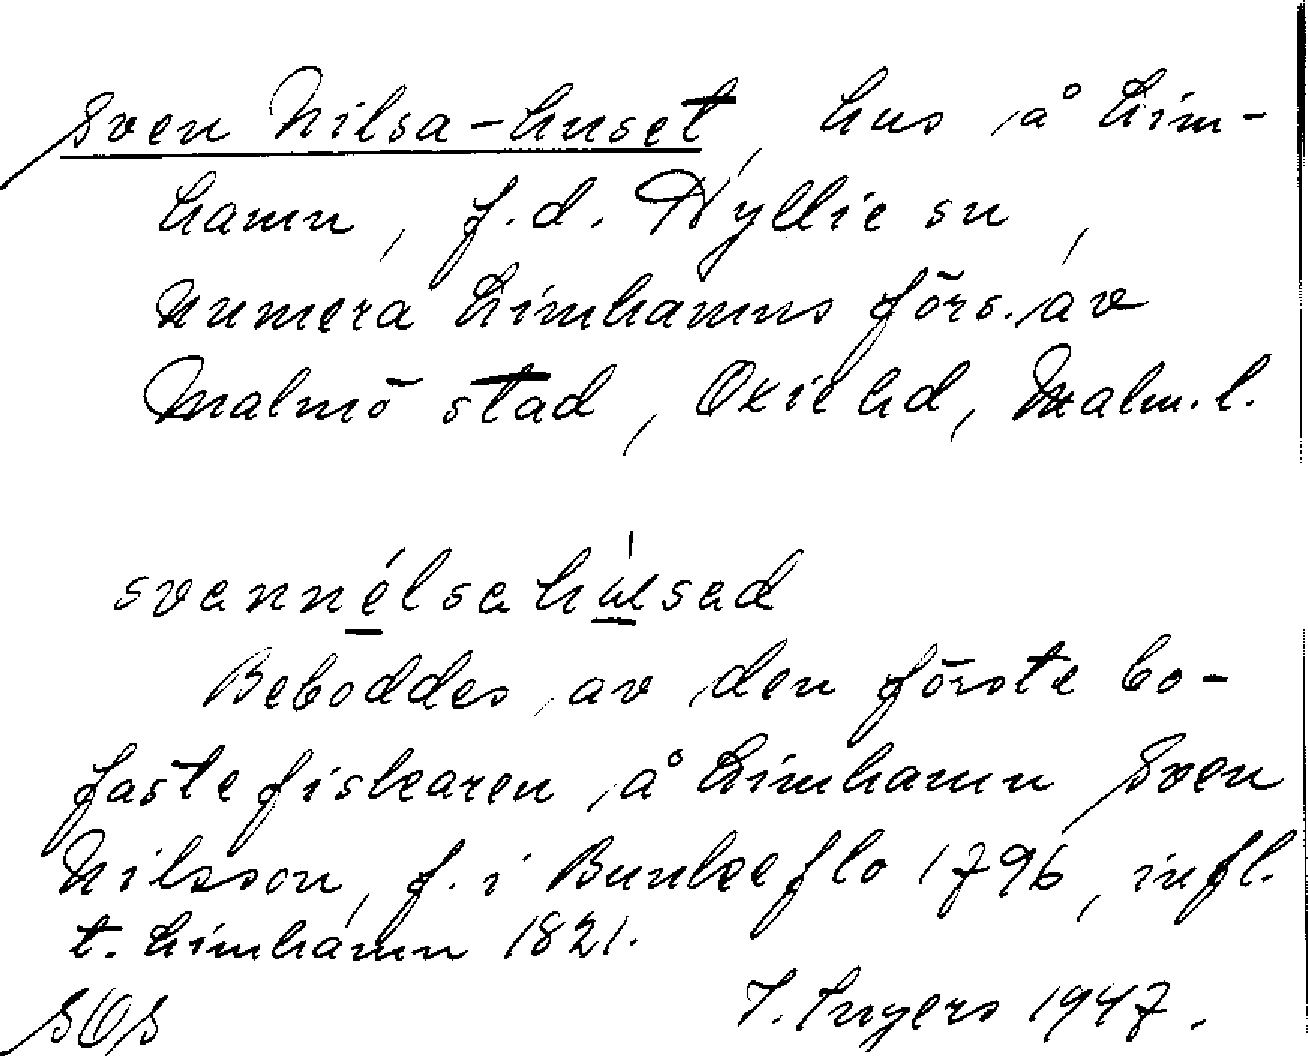 Sven Nilsa-huset, hus å Lim-
hamn, f.d. Hyllie sn,
numera Limhamns förs. av
Malmö stad, Oxie hd, Malm. l.
svennélsahúsad
Beboddes av den förste bo-
faste fiskaren å Limhamn Sven
Nilsson, f. i Bunkeflo 1796, infl.
t. Limhamn 1821.
SOS I. Ingers 1947.